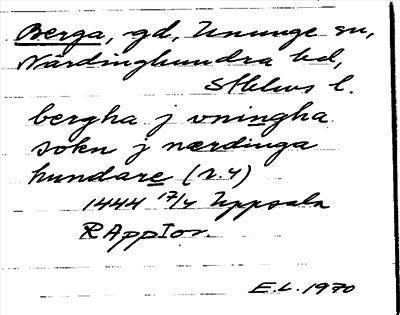 Berga, gd, Ununge sn,
Närdinghundra hd,
Sthlms l.
bergha j vningha
sokn j nærdinga
hundare (r.4)
1444 17/4 Uppsala
RAppTor.
E.L. 1970